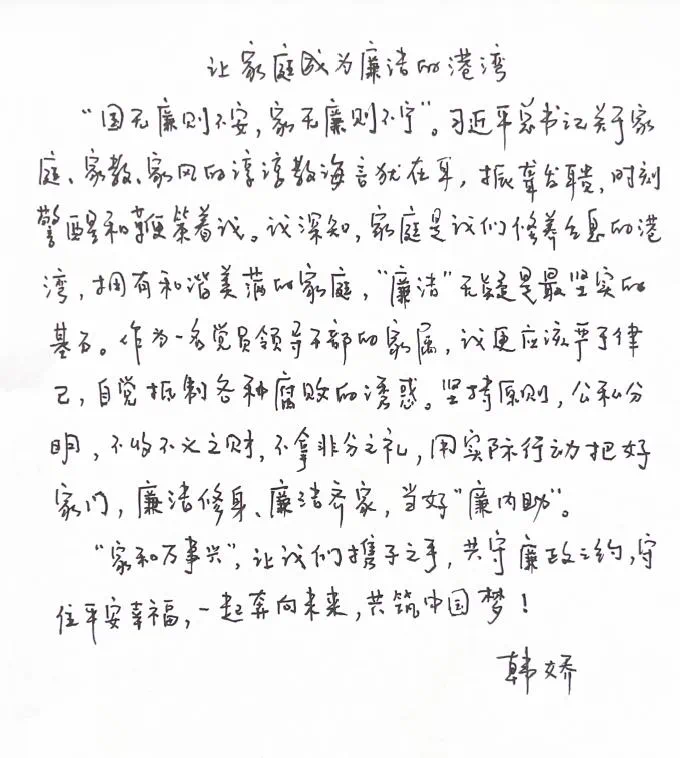 让家庭成为廉洁的港湾
“国无廉则不安，家无廉则不宁”。习近平总书记关于家
庭、家教、家风的谆谆教诲言犹在耳，振聋发聩，时刻
警醒和鞭策着我。我深知，家庭是我们修养生息的港
湾，拥有和谐美满的家庭，“廉洁”无疑是最坚实的
基石。作为一名党员领导干部的家属，我更应该严于律
己，自觉抵制各种腐败的诱惑。坚持原则，公私分
明，不收不义之财，不拿非分之礼，用实际行动把好
家门，廉洁修身、廉洁齐家，当好“廉内助”。
“家和万事兴”，让我们携子之手，共守廉政之约，守
住平安幸福，一起奔向未来，共筑中国梦！
韩娇